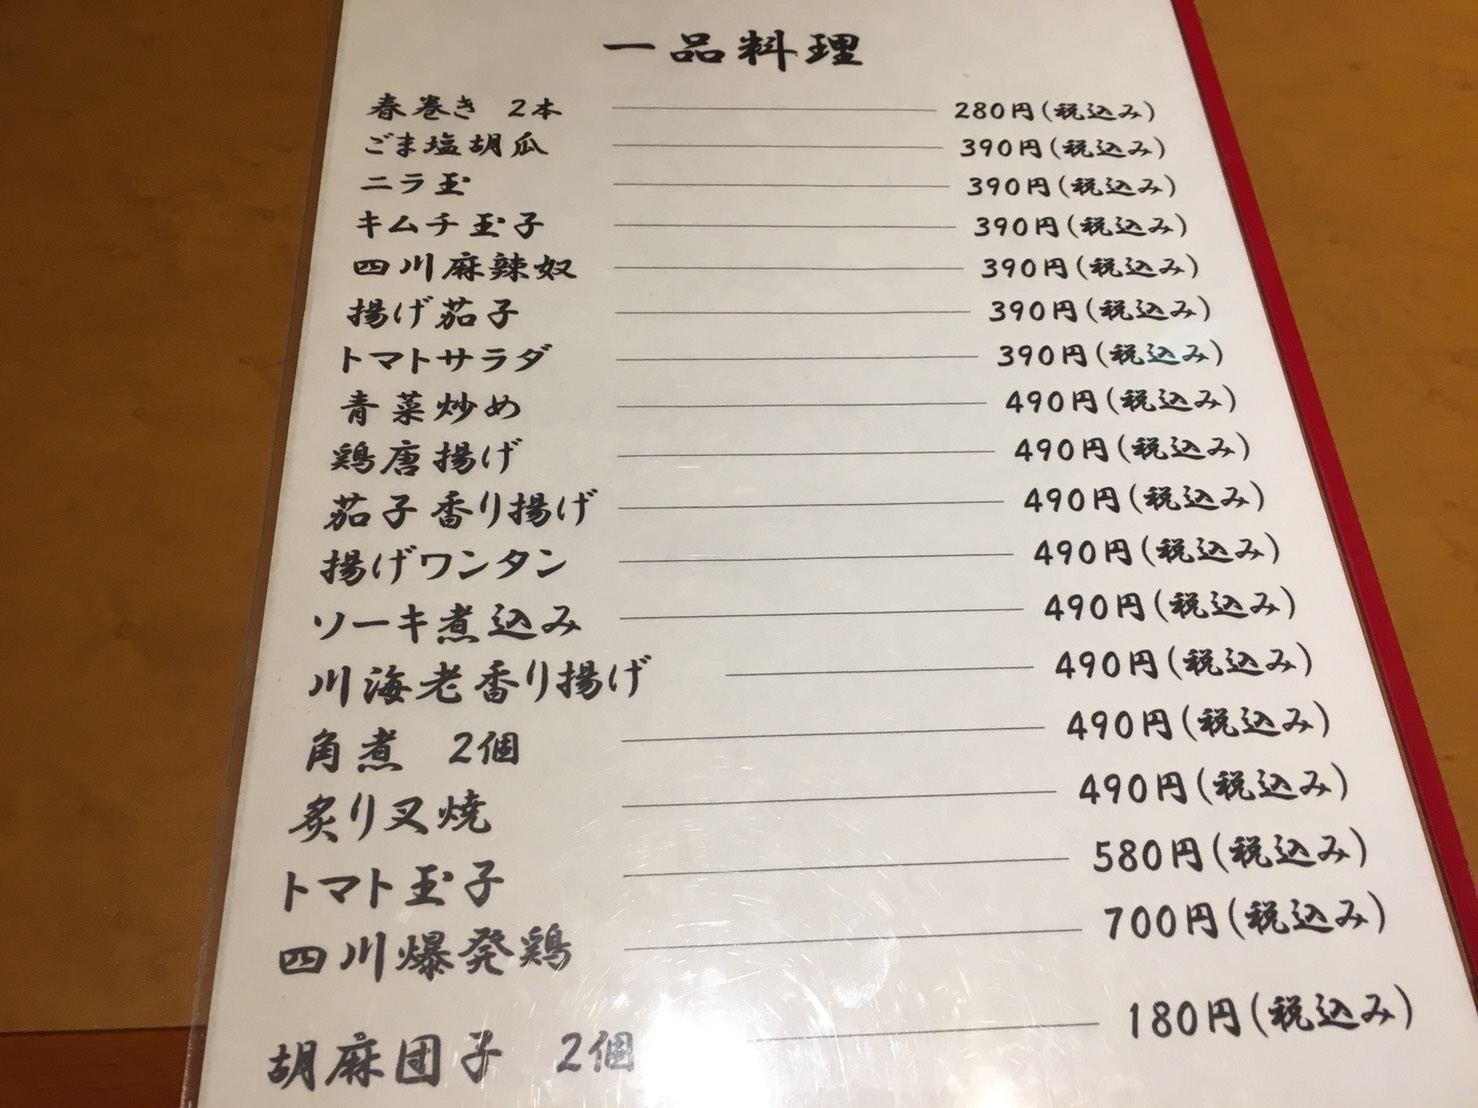 一品料理
春巻き 2本 280円(税込み)
ごま塩胡瓜 390円(税込み)
ニラ玉 390円(税込み)
キムチ玉子 390円(税込み)
四川麻辣奴 390円(税込み)
揚げ茄子 390円(税込み)
トマトサラダ 390円(税込み)
青菜炒め 490円(税込み)
鶏唐揚げ 490円(税込み)
茄子香り揚げ 490円(税込み)
揚げワンタン 490円(税込み)
ソーキ煮込み 490円(税込み)
川海老香り揚げ 490円(税込み)
角煮 2個 490円(税込み)
炙り叉焼 490円(税込み)
トマト玉子 580円(税込み)
四川爆発鶏 700円(税込み)
胡麻団子 2個 180円(税込み)